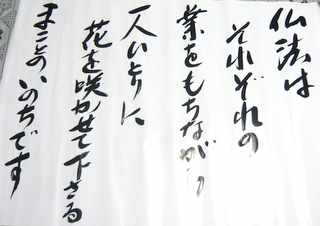 仏法は
それぞれの
業をもちながら
一人ひとりに
花を咲かせて下さる
まことのいのちです